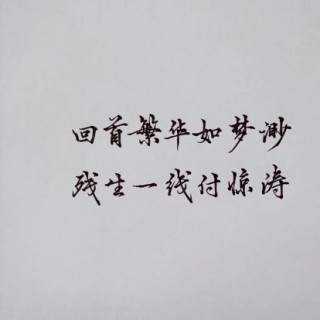 回首繁华如梦渺
残生一线付惊涛